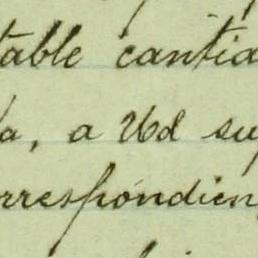 table cantida
a, a Ud sup
rrespondien